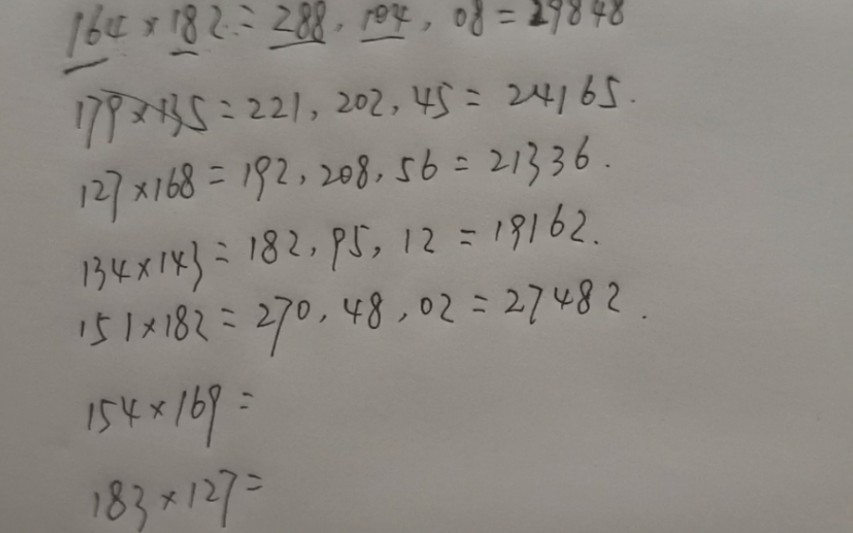 164×182=288,104,08=29848
179×135=221,202,45=24165.
127×168=192,208,56=21336.
134×143=182,95,12=19162.
151×182=270,48,02=27482.
154×169=
183×127=